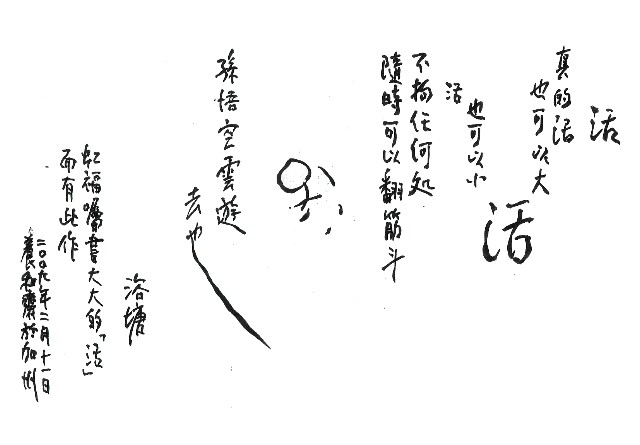 活
真的活
也可以大
活
也可以小
活
不拘任何処
隨時可以翻筋斗
孫悟空雲遊
去也
浴塘
虹福囑書大大的「活」
而有此作
二00九年二月十一日
養和齋於加州